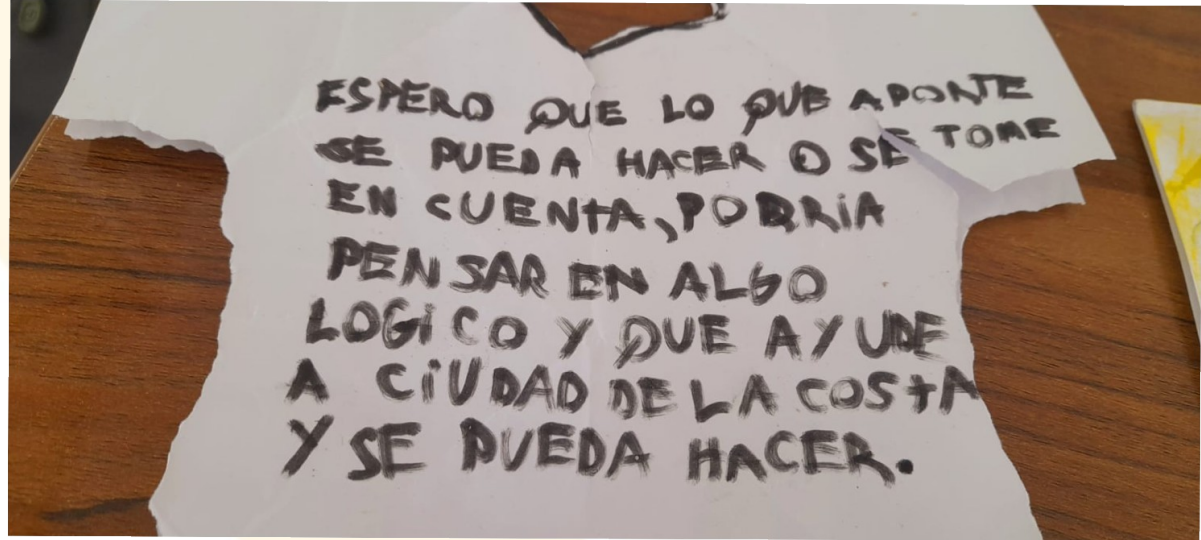 ESPERO QUE LO QUE APORTE
SE PUEDA HACER O SE TOME
EN CUENTA, PODRiA
PENSAR EN ALGO
LOGiCO Y QUE AYUDE
A CiUDAD DE LA COSTA
Y SE PUEDA HACER.